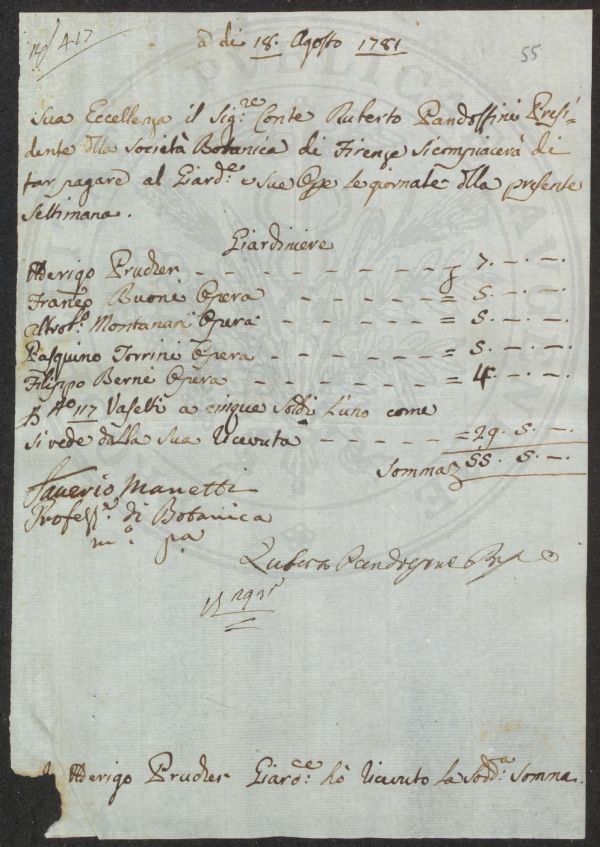 à di 18. Agosto 1781
55
Sua Eccellenza il Sig:re Conte Ruberto Pandolfini Presi=
dente dlla Società Botanica di Firenze si compiacerà di
far pagare al Giard:e e sue Ope le giornate dlla presente
Settimana.
Giardiniere
Uderigo Prucker - - - - - - - = 7. -. -.
Franc:o Buoni Opera - - - - - = 5. -. -.
Altro Montanari Opera - - - - = 5. -. -.
Pasquino Torrini Opera - - - - = 5. -. -.
Filippo Berni Opera - - - - - = 4. -. -.
P No 117 Vaselli a cinque Soldi l'uno come
si vede dalla sua ricevuta - - - - - = 29. 5. -.
Somma 55. 5. -.
Saverio Manetti
Profess:e di Botanica
m:o pa
Ruberto Pandolfini
Uderigo Prucker Giard:re hò ricevuto la Sodd:a Somma.